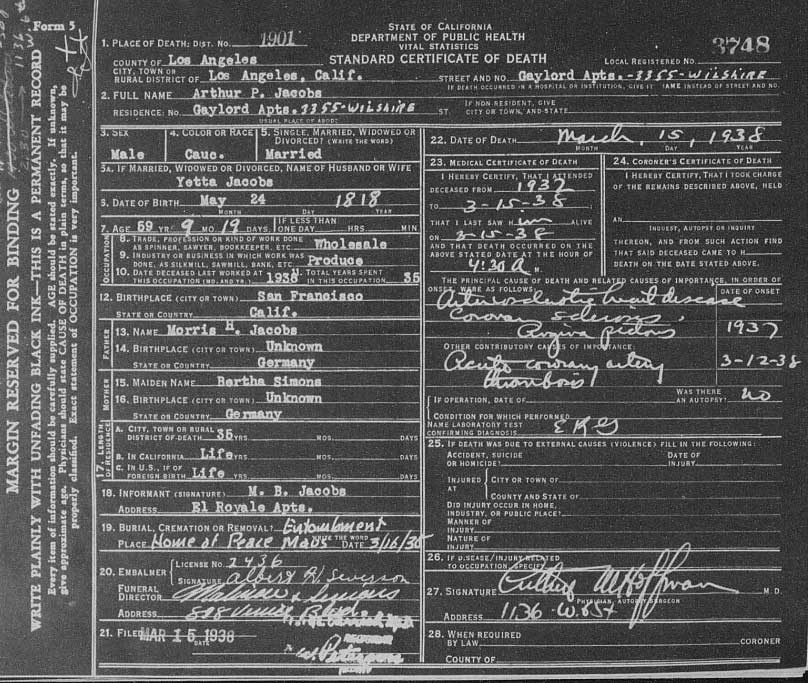 Form 5
MARGIN RESERVED FOR BINDING
WRITE PLAINLY WITH UNFADING BLACK INK—THIS IS A PERMANENT RECORD
Every item of information should be carefully supplied. AGE should be stated exactly. If unknown,
give approximate age. Physicians should state CAUSE OF DEATH in plain terms, so that it may be
properly classified. Exact statement of OCCUPATION is very important.
STATE OF CALIFORNIA
DEPARTMENT OF PUBLIC HEALTH
VITAL STATISTICS
STANDARD CERTIFICATE OF DEATH
1. PLACE OF DEATH: DIST. NO. 1901
LOCAL REGISTERED NO. 3748
COUNTY OF Los Angeles
CITY, TOWN OR
RURAL DISTRICT OF Los Angeles, Calif.
STREET AND NO. Gaylord Apts.-3355-WILSHIRE
IF DEATH OCCURRED IN A HOSPITAL OR INSTITUTION, GIVE ITS NAME INSTEAD OF STREET AND NO.
2. FULL NAME Arthur P. Jacobs
RESIDENCE: NO. Gaylord Apts. 3355-WILSHIRE ST.
USUAL PLACE OF ABODE
IF NON-RESIDENT, GIVE
CITY OR TOWN, AND STATE
3. SEX Male
4. COLOR OR RACE Cauc.
5. SINGLE, MARRIED, WIDOWED OR
DIVORCED? (WRITE THE WORD) Married
5A. IF MARRIED, WIDOWED OR DIVORCED, NAME OF HUSBAND OR WIFE
Yetta Jacobs
6. DATE OF BIRTH May 24 1818
MONTH DAY YEAR
7. AGE 59 YR 9 MO 19 DAYS
IF LESS THAN
ONE DAY HRS. MIN
OCCUPATION
8. TRADE, PROFESSION OR KIND OF WORK DONE
AS SPINNER, SAWYER, BOOKKEEPER, ETC. Wholesale
9. INDUSTRY OR BUSINESS IN WHICH WORK WAS
DONE, AS SILKMILL, SAWMILL, BANK, ETC. Produce
10. DATE DECEASED LAST WORKED AT
THIS OCCUPATION (MO. AND YR.) 1938
11. TOTAL YEARS SPENT
IN THIS OCCUPATION 35
12. BIRTHPLACE (CITY OR TOWN) San Francisco
STATE OR COUNTRY Calif.
FATHER
13. NAME Morris H. Jacobs
14. BIRTHPLACE (CITY OR TOWN) Unknown
STATE OR COUNTRY Germany
MOTHER
15. MAIDEN NAME Bertha Simons
16. BIRTHPLACE (CITY OR TOWN) Unknown
STATE OR COUNTRY Germany
17. LENGTH OF RESIDENCE
A. CITY, TOWN OR RURAL
DISTRICT OF DEATH 35 YRS. MOS. DAYS
B. IN CALIFORNIA Life YRS. MOS. DAYS
C. IN U.S., IF OF
FOREIGN BIRTH Life YRS. MOS. DAYS
18. INFORMANT (SIGNATURE) M. B. Jacobs
ADDRESS El Royale Apts.
19. BURIAL, CREMATION OR REMOVAL? Entombment
WRITE THE WORD
PLACE Home of Peace Maus DATE 3/16/38
20. EMBALMER LICENSE NO. 2436
SIGNATURE Albert H.
FUNERAL
DIRECTOR Malinow & Simons
ADDRESS 808 Venice Blvd
21. FILED MAR 15 1938
DATE
22. DATE OF DEATH March, 15, 1938
MONTH DAY YEAR
23. MEDICAL CERTIFICATE OF DEATH
I HEREBY CERTIFY, THAT I ATTENDED
DECEASED FROM 1937
TO 3-15-38
THAT I LAST SAW HIM ALIVE
ON 3-15-38
AND THAT DEATH OCCURRED ON THE
ABOVE STATED DATE AT THE HOUR OF
4:30 A M.
24. CORONER'S CERTIFICATE OF DEATH
I HEREBY CERTIFY, THAT I TOOK CHARGE
OF THE REMAINS DESCRIBED ABOVE, HELD
AN
INQUEST, AUTOPSY OR INQUIRY
THEREON, AND FROM SUCH ACTION FIND
THAT SAID DECEASED CAME TO H
DEATH ON THE DATE STATED ABOVE.
THE PRINCIPAL CAUSE OF DEATH AND RELATED CAUSES OF IMPORTANCE, IN ORDER OF
ONSET, WERE AS FOLLOWS:
DATE OF ONSET
Arteriosclerotic heart disease
Coronary sclerosis.
Angina pectoris 1937
OTHER CONTRIBUTORY CAUSES OF IMPORTANCE:
Acute coronary artery 3-12-38
thrombosis
IF OPERATION, DATE OF
WAS THERE
AN AUTOPSY? no
CONDITION FOR WHICH PERFORMED
NAME LABORATORY TEST
CONFIRMING DIAGNOSIS EKG
25. IF DEATH WAS DUE TO EXTERNAL CAUSES (VIOLENCE) FILL IN THE FOLLOWING:
ACCIDENT, SUICIDE
OR HOMICIDE?
DATE OF
INJURY
INJURED
AT
CITY OR TOWN OF
COUNTY AND STATE OF
DID INJURY OCCUR IN HOME,
INDUSTRY, OR PUBLIC PLACE?
MANNER OF
INJURY
NATURE OF
INJURY
26. IF DISEASE/INJURY RELATED
TO OCCUPATION, SPECIFY
27. SIGNATURE Hoffman M.D.
PHYSICIAN, AUTOPSY SURGEON
ADDRESS 1136-W. 6 St
28. WHEN REQUIRED
BY LAW CORONER
COUNTY OF